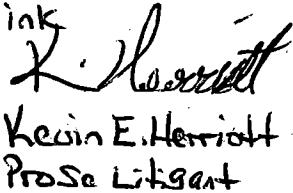 ink
K. Herriott
Kevin E. Herriott
Prose Litigant